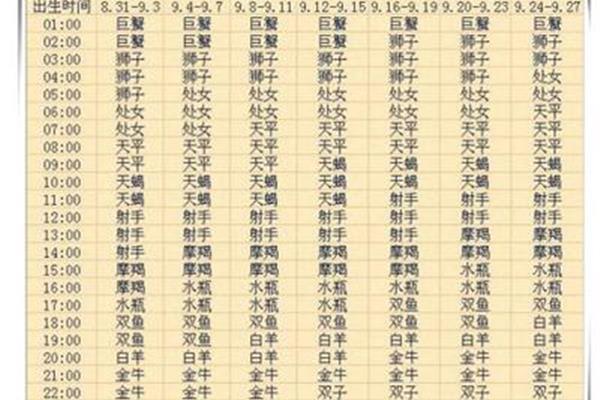 出生时间 8.31-9.3 9.4-9.7 9.8-9.11 9.12-9.15 9.16-9.19 9.20-9.23 9.24-9.27
01:00 巨蟹 巨蟹 巨蟹 巨蟹 巨蟹 巨蟹 巨蟹
02:00 巨蟹 巨蟹 巨蟹 巨蟹 狮子 狮子 狮子
03:00 狮子 狮子 狮子 狮子 狮子 狮子 狮子
04:00 狮子 狮子 狮子 狮子 狮子 狮子 处女
05:00 狮子 处女 处女 处女 处女 处女 处女
06:00 处女 处女 处女 处女 处女 处女 天平
07:00 处女 天平 天平 天平 天平 天平 天平
08:00 天平 天平 天平 天平 天平 天平 天平
09:00 天平 天平 天平 天蝎 天蝎 天蝎 天蝎
10:00 天蝎 天蝎 天蝎 天蝎 天蝎 天蝎 天蝎
11:00 天蝎 天蝎 天蝎 天蝎 射手 射手 射手
12:00 射手 射手 射手 射手 射手 射手 射手
13:00 射手 射手 射手 射手 射手 摩羯 摩羯
14:00 射手 摩羯 摩羯 摩羯 摩羯 摩羯 摩羯
15:00 摩羯 摩羯 摩羯 摩羯 摩羯 水瓶 水瓶
16:00 摩羯 水瓶 水瓶 水瓶 水瓶 水瓶 水瓶
17:00 水瓶 水瓶 水瓶 水瓶 双鱼 双鱼 双鱼
18:00 双鱼 双鱼 双鱼 双鱼 双鱼 双鱼 白羊
19:00 双鱼 双鱼 白羊 白羊 白羊 白羊 白羊
20:00 白羊 白羊 白羊 白羊 金牛 金牛 金牛
21:00 金牛 金牛 金牛 金牛 金牛 金牛 金牛
22:00 金牛 金牛 金牛 双子 双子 双子 双子